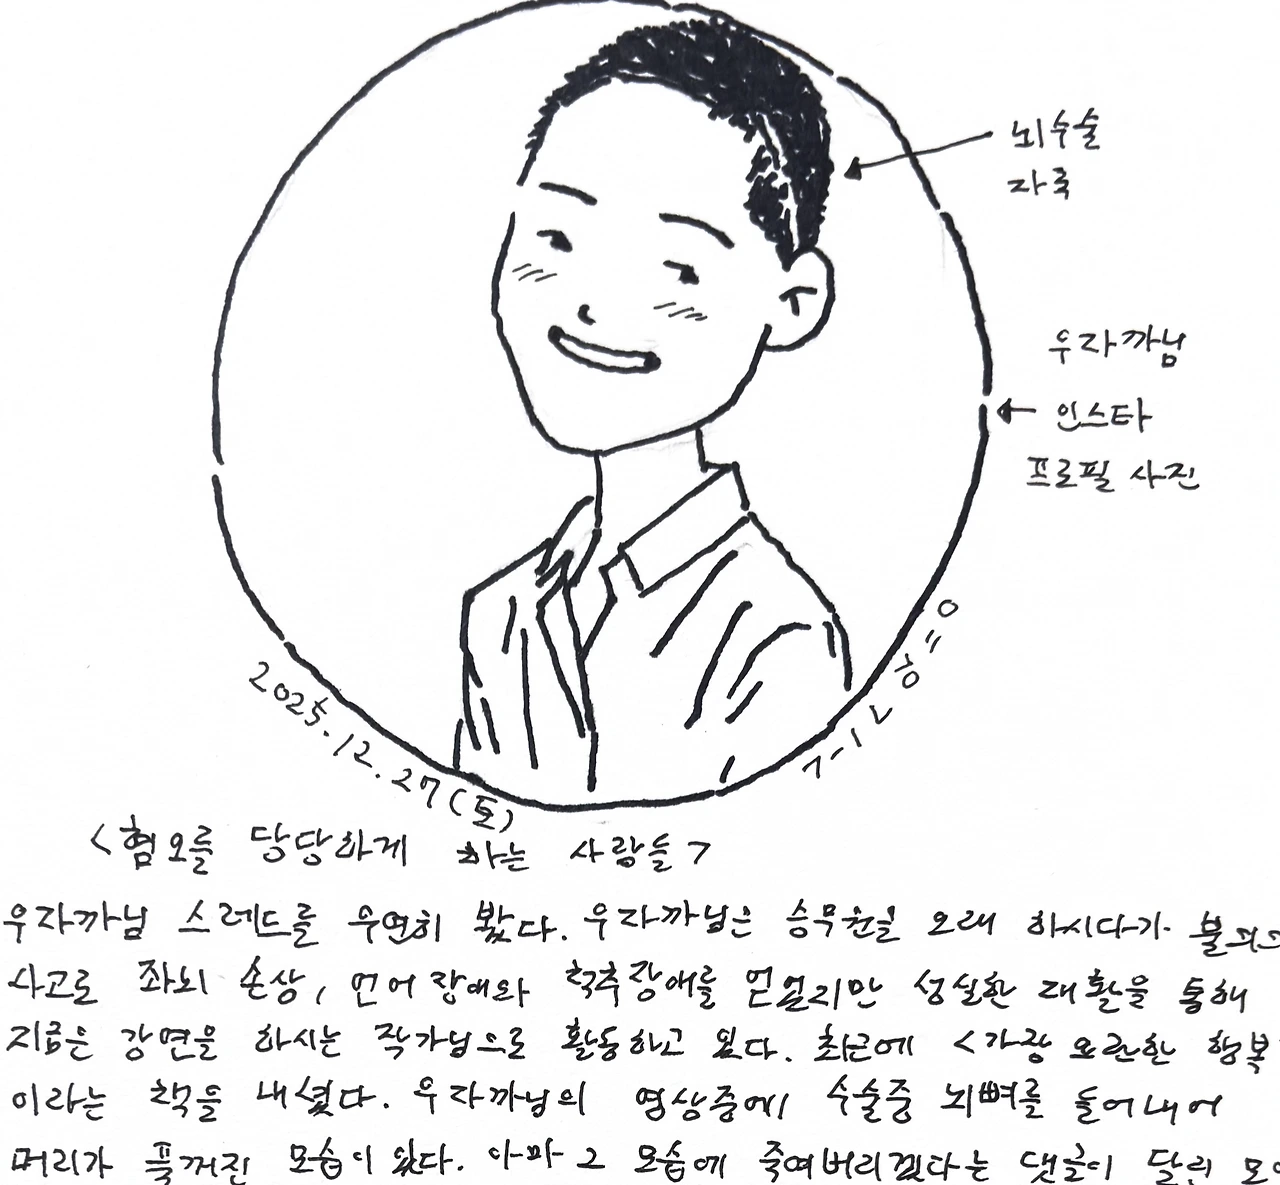 뇌수술
자국
우자까님
인스타
프로필 사진
2025.12.27(토)
<혐오를 당당하게 하는 사람들>
우자까님 스레드를 우연히 봤다. 우자까님은 승무원을 오래 하시다가 불의
사고로 좌뇌 손상, 언어장애와 척추장애를 얻었지만 성실한 재활을 통해
지금은 강연을 하시는 작가님으로 활동하고 있다. 최근에 <가장 요란한 행복
이라는 책을 내셨다. 우자까님의 영상중에 수술중 뇌뼈를 들어내어
머리가 푹꺼진 모습이 있다. 아마 그 모습에 죽여버리겠다는 댓글이 달린 모